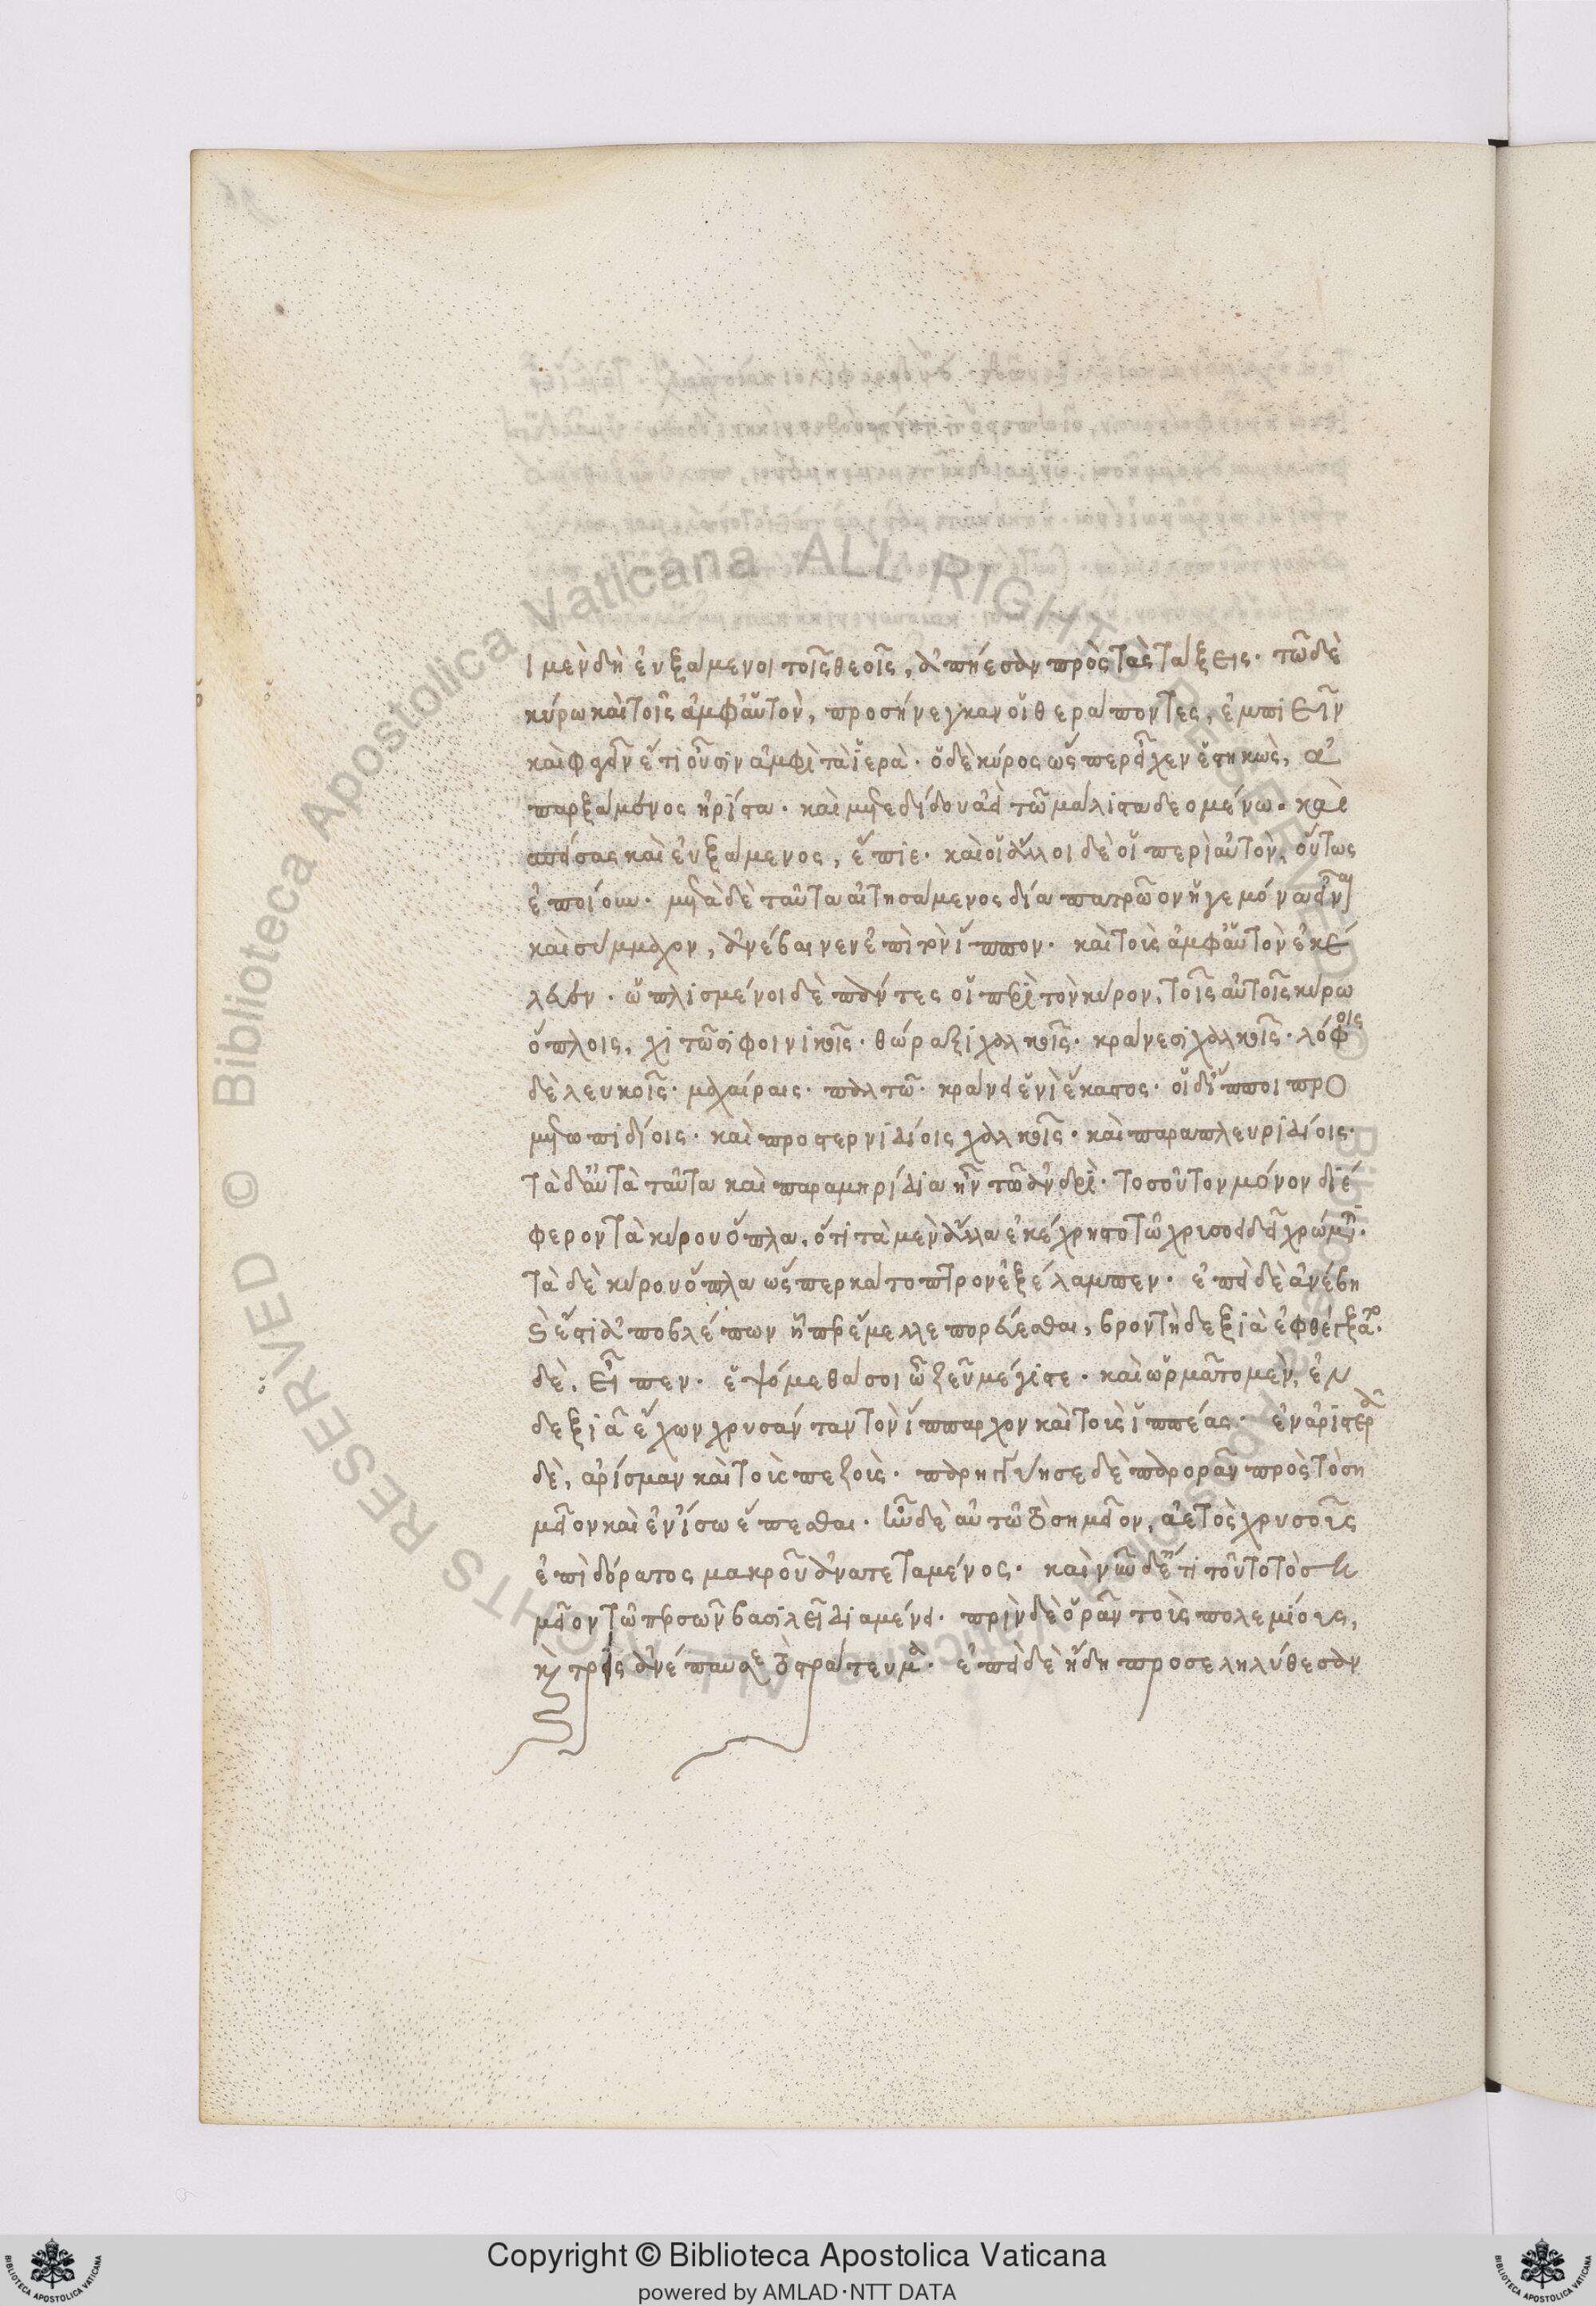 ι μὲν δὴ ἐυξάμενοι τοῖς θεοῖς, ἀπήεσαν πρὸς τὰς τάξεις. τῶ δὲ
κύρω καὶ τοῖς ἀμφ' ἀυτὸν, προσήνεγκαν οἱ θεράποντες, ἐμπιεῖν
καὶ φαγεῖν ἔτι οὖσιν ἀμφὶ τὰ ἱερὰ. ὁ δὲ κύρος ὥσπερ εἶχεν ἑστηκὼς, ἀ
παρξάμενος ἠρίστα. καὶ μετεδίδου ἀεὶ τῶ μάλιστα δεομένω. καὶ
σπείσας καὶ ἐυξάμενος, ἔπιε. καὶ οἱ ἄλλοι δὲ οἱ περὶ αὐτὸν, οὕτως
ἐποίουν. μετὰ δὲ ταῦτα αἰτησάμενος δία πατρῶον ἡγεμόνα εἶναι
καὶ σύμμαχον, ἀνέβαινεν ἐπὶ τὸν ἵππον. καὶ τοὺς ἀμφ' ἀυτὸν ἐκέ
λευεν. ὡπλισμένοι δὲ πάντες οἱ περὶ τὸν κύρον, τοῖς αὐτοῖς κύρω
ὅπλοις, χιτῶσι φοινικοῖς. θώραξι χαλκοῖς. κράνεσι χαλκοῖς. λόφοις
δὲ λευκοῖς. μαχαίραις. παλτῶ. κρανείενὶ ἕκαστος. οἱ δ' ἵπποι προ
μετωπιδίοις. καὶ προστερνιδίοις χαλκοῖς. καὶ παραπλευριδίοις.
τὰ δ' ἀυτὰ ταῦτα καὶ παραμηρίδια ἦν τῶ ἀνδρὶ. τοσοῦτον μόνον διέ
φερον τὰ κύρου ὅπλα, ὅτι τὰ μὲν ἄλλα ἐκέχριστο τῶ χρυσοειδεῖ χρώματι.
τὰ δὲ κύρου ὅπλα ὥσπερ κάτοπτρον ἐξέλαμπεν. ἐπεὶ δὲ ἀνέβη
καὶ ἔστι ἀποβλέπων ἥπερ ἔμελλε πορεύεσθαι, βροντὴ δεξιὰ ἐφθέγξατο.
δὲ, εἶπεν. ἑψόμεθά σοι ὦ ζεῦ μέγιστε. καὶ ὡρμᾶτο μὲν, ἐν
δεξιᾶ ἔχων χρυσάνταν τὸν ἵππαρχον καὶ τοὺς ἱππέας. ἐν ἀριστερᾶ
δὲ, αρίσμαν καὶ τοὺς πεζοὺς. παρηγγύησε δὲ παρορᾶν πρὸς τὸ ση
μεῖον καὶ ἐν ἴσω ἕπεσθαι. ἦν δὲ αὐτῶ τὸ σημεῖον, ἀετὸς χρυσοῦς
ἐπὶ δόρατος μακροῦ ἀνατεταμένος. καὶ νῦν δ' ἔτι τοῦτο τὸ ση
μεῖον τῶ περσῶν βασιλεῖ διαμένει. πρὶν δὲ ὁρᾶν τοὺς πολεμίους,
καὶ τρὶς ἀνέπαυσε τὸ στράτευμα. ἐπεὶ δὲ ἤδη προσεληλύθεσαν